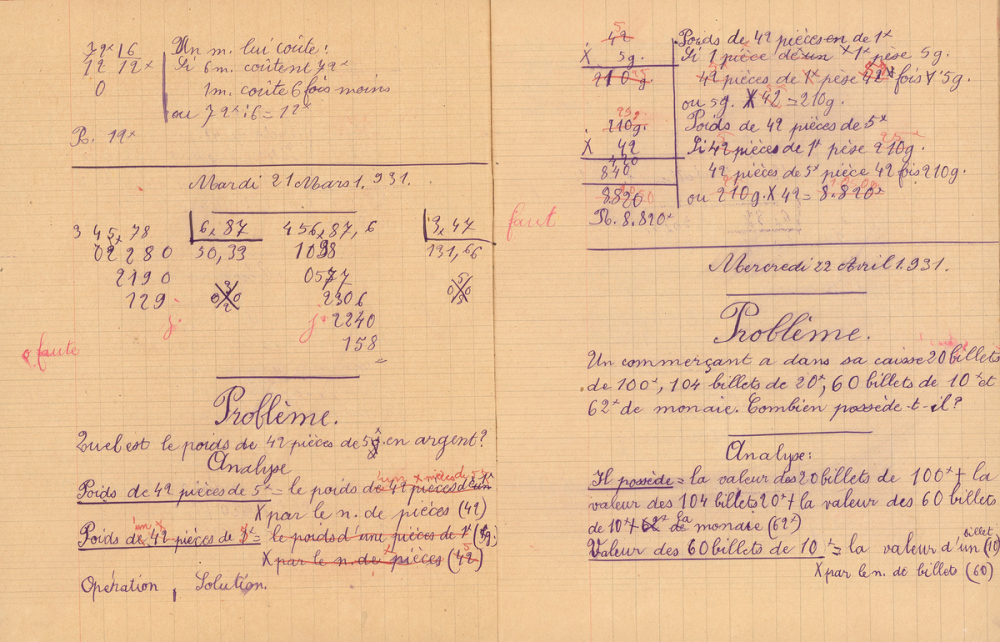 72ˣ 16 Un m. lui coûte:
12 12ˣ Si 6 m. coûtent 72ˣ
0 1 m. coûte 6 fois moins
ou 72ˣ : 6 = 12ˣ
R. 12ˣ
Mardi 21 Mars 1.931.
3 45,78 6,87 456,87,6 3,47
02 280 50,33 1098 131,66
2190 0577
129 2306
j. j. 2240
faute 158
Problème.
Quel est le poids de 42 pièces de 5ˣ en argent?
Analyse
Poids de 42 pièces de 5ˣ = le poids de 42 pièces d'un
X par le n. de pièces (42)
Poids de 42 pièces de = le poids d'une pièces de 1ˣ (5g.
X par le n. de pièces (42)
Opération, Solution.
42 Poids de 42 pièces en de 1ˣ
X 5g. Si 1 pièce de un X 1ˣ pèse 5g.
210g. 42 pièces de 1ˣ pèse 42 fois 5g.
ou 5g. X 42 = 210g.
210g. Poids de 42 pièces de 5ˣ
X 42 Si 42 pièces de 1ˣ pèse 210g.
420
840 42 pièces de 5ˣ pèse 42 fois 210g.
8820 ou 210g. X 42 = 8.820ˣ
faut R. 8.820ˣ
Mercredi 22 Avril 1.931.
Problème.
Un commerçant a dans sa caisse 20 billets
de 100ˣ, 104 billets de 20ˣ, 60 billets de 10ˣ et
62ˣ de monaie. Combien possède-t-il?
Analyse:
Il possède = la valeur des 20 billets de 100ˣ + la
valeur des 104 billets 20ˣ + la valeur des 60 billets
de 10ˣ + 62ˣ de la monaie (62ˣ)
Valeur des 60 billets de 10ˣ = la valeur d'un billet (10
X par le n. de billet (60)